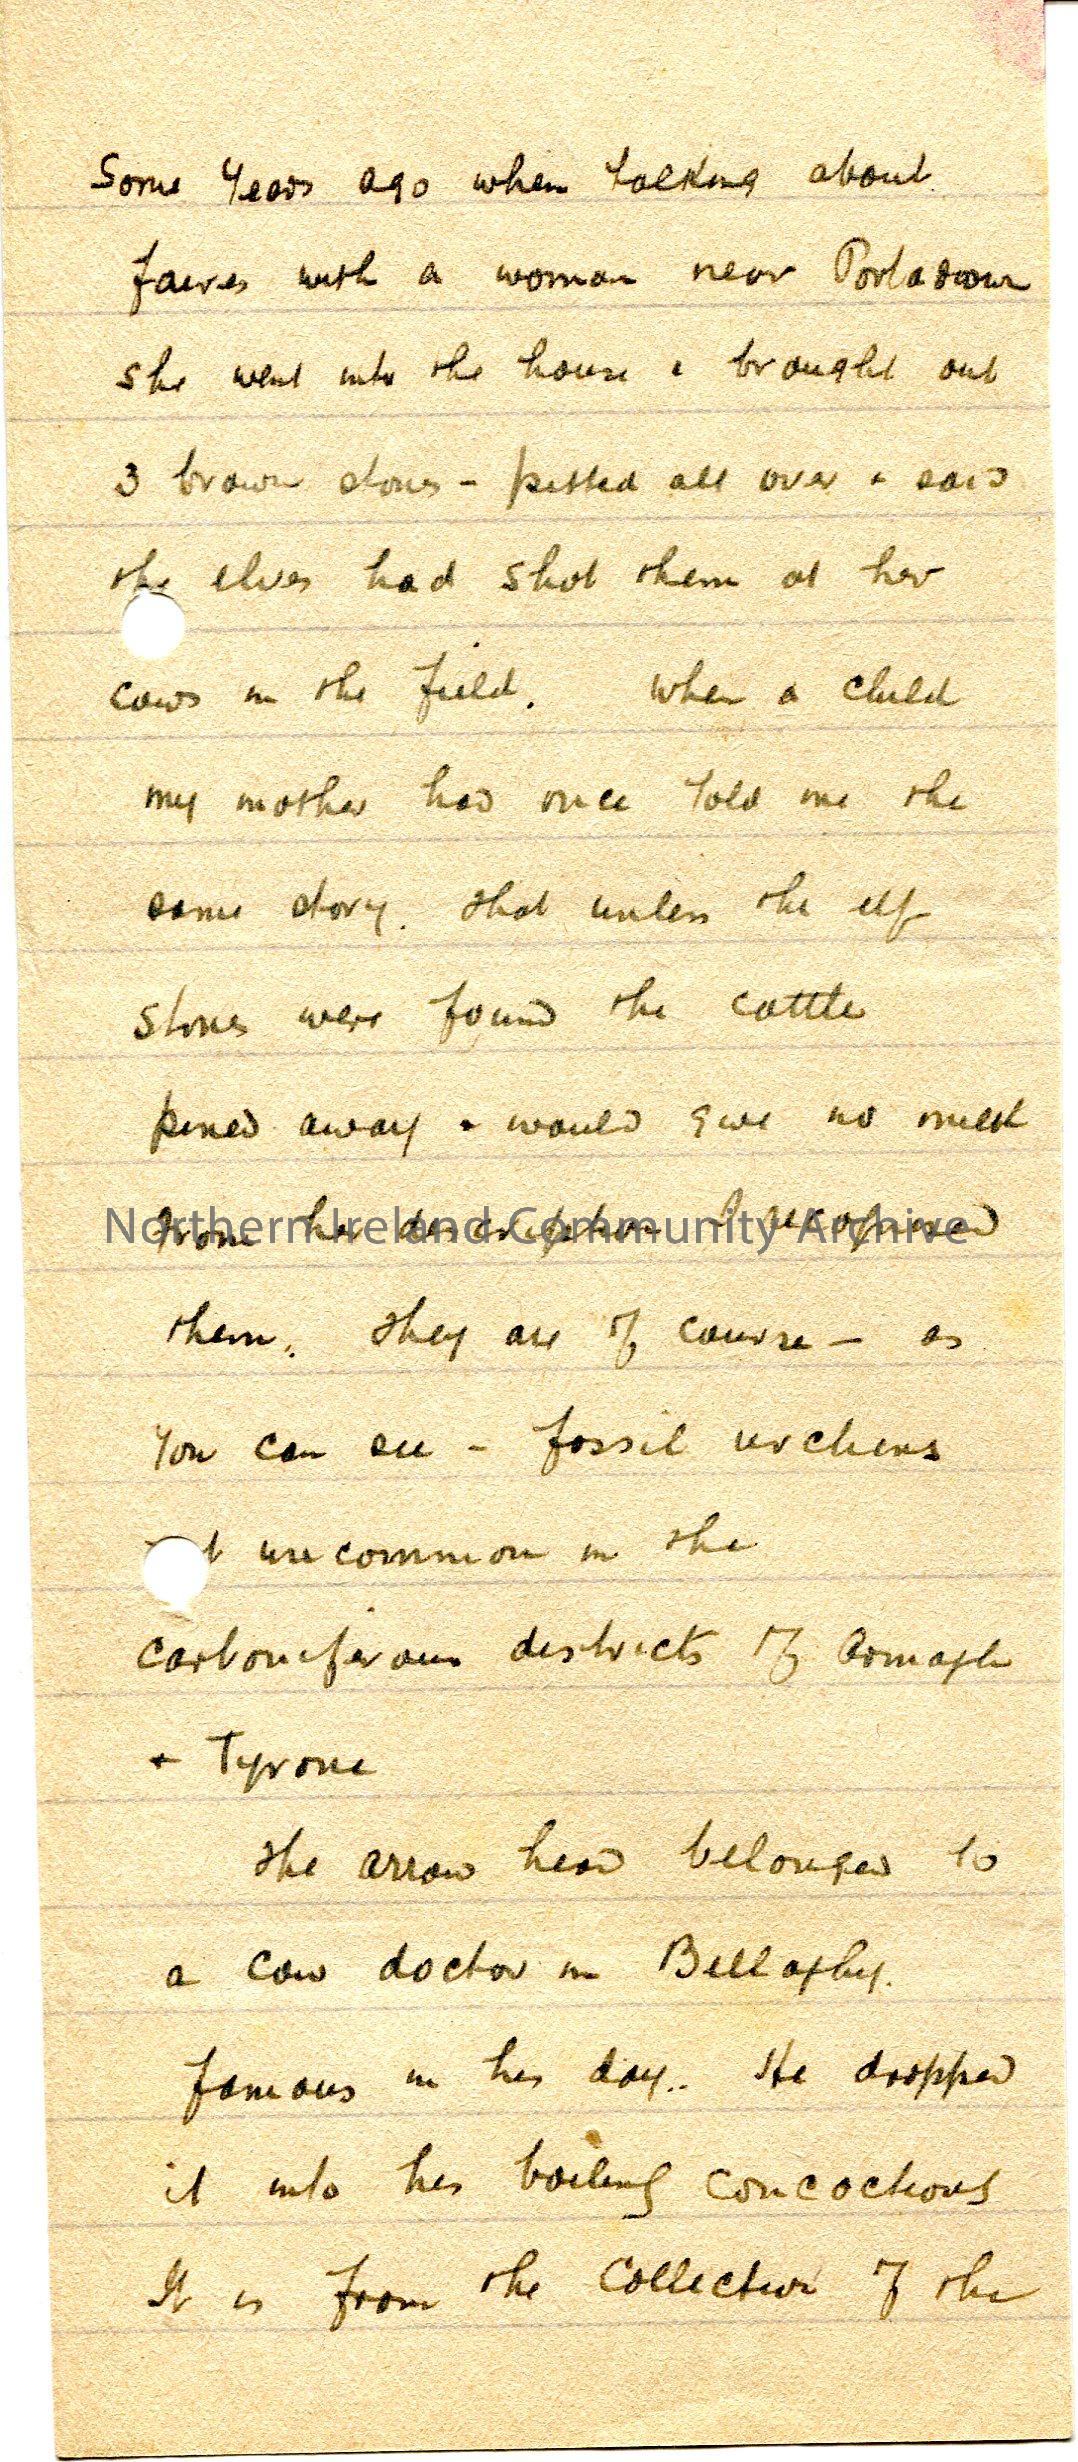 Some years ago when talking about
fairies with a woman near Portadown
she went into the house & brought out
3 brown stones - pitted all over & said
the elves had shot them at her
cows in the field. When a child
my mother had once told me the
same story. That unless the elf
stones were found the cattle
pined away & would give no milk
From her description I recognised
them. They are of course - as
you can see - fossil urchins
uncommon in the
carboniferous districts of Armagh
& Tyrone
The arrow head belonged to
a cow doctor in Bellaghy.
famous in his day.. He dropped
it into his boiling concoctions
It is from the collection of the
Northern Ireland Community Archive